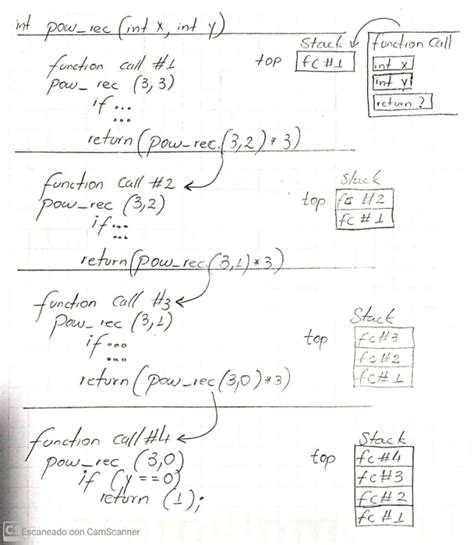 int pow_rec (int x, int y)
Stack
function call
function call #1
top
fc #1
int x
pow_rec (3,3)
int y
if ...
...
return ?
return (pow_rec (3,2) * 3)
function call #2
Stack
pow_rec (3,2)
top
fc #2
if ...
fc #1
...
return (pow_rec (3,1) * 3)
function call #3
Stack
pow_rec (3,1)
top
fc #3
if ...
fc #2
...
fc #1
return (pow_rec (3,0) * 3)
function call #4
Stack
pow_rec (3,0)
top
fc #4
if (y == 0)
fc #3
return (1);
fc #2
fc #1
CS Escaneado con CamScanner